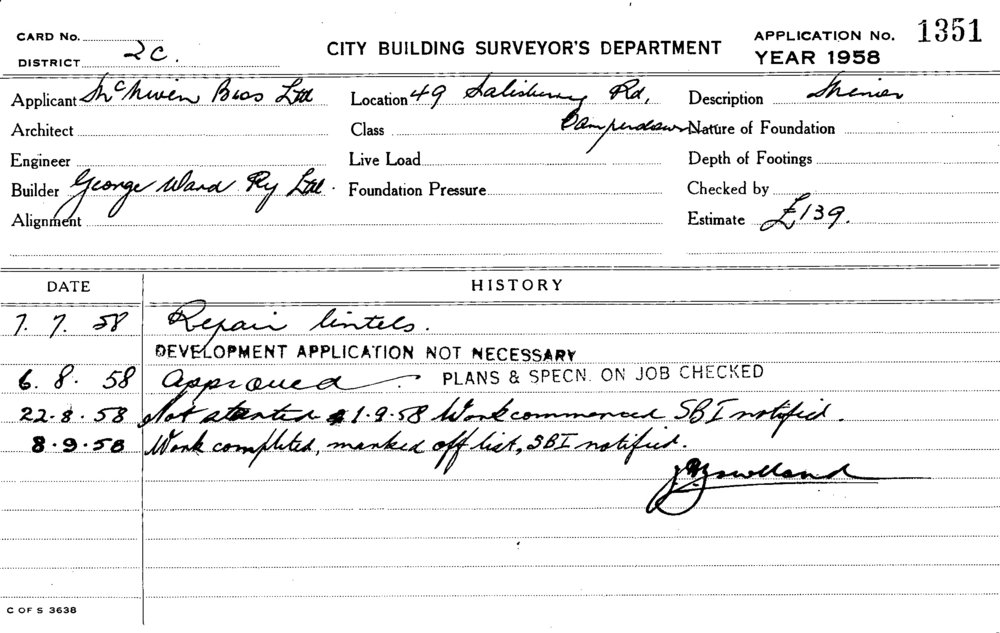 CARD No.
DISTRICT 2C.
CITY BUILDING SURVEYOR'S DEPARTMENT
APPLICATION No. 1351
YEAR 1958
Applicant McNiven Bros Ltd Location 49 Salisbury Rd, Description
Architect Class Camperdown Nature of Foundation
Engineer Live Load Depth of Footings
Builder George Ward Pty Ltd. Foundation Pressure Checked by
Alignment Estimate £139.
DATE HISTORY
7. 7. 58 Repair lintels.
DEVELOPMENT APPLICATION NOT NECESSARY
6. 8. 58 Approved PLANS & SPECN. ON JOB CHECKED
22.8.58 Not started 1.9.58 Work commenced SBI notified.
8.9.58 Work completed, marked off list, SBI notified.
C OF S 3638